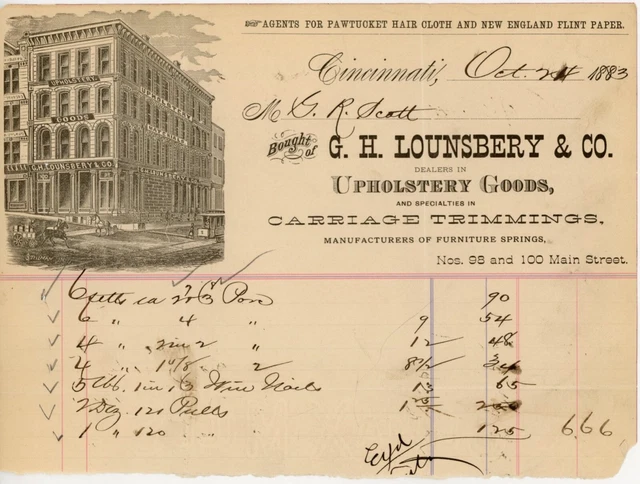 AGENTS FOR PAWTUCKET HAIR CLOTH AND NEW ENGLAND FLINT PAPER.
Cincinnati, Oct. 24 1883
M G. R. Scott
Bought of G. H. LOUNSBERY & CO.
DEALERS IN
UPHOLSTERY GOODS,
AND SPECIALTIES IN
CARRIAGE TRIMMINGS,
MANUFACTURERS OF FURNITURE SPRINGS,
Nos. 98 and 100 Main Street.
UPHOLSTERY
GOODS
G.H. LOUNSBERY & CO.
6 setts ea 2 & 3 90
6 " 4 " 9 54
4 " 2 " 12 48
4 " " 2 8½ 34
5 lbs. 1 in 16 Wire Nails 13 65
2 Doz 121 Pulls 1
1 " 120 " 125 666